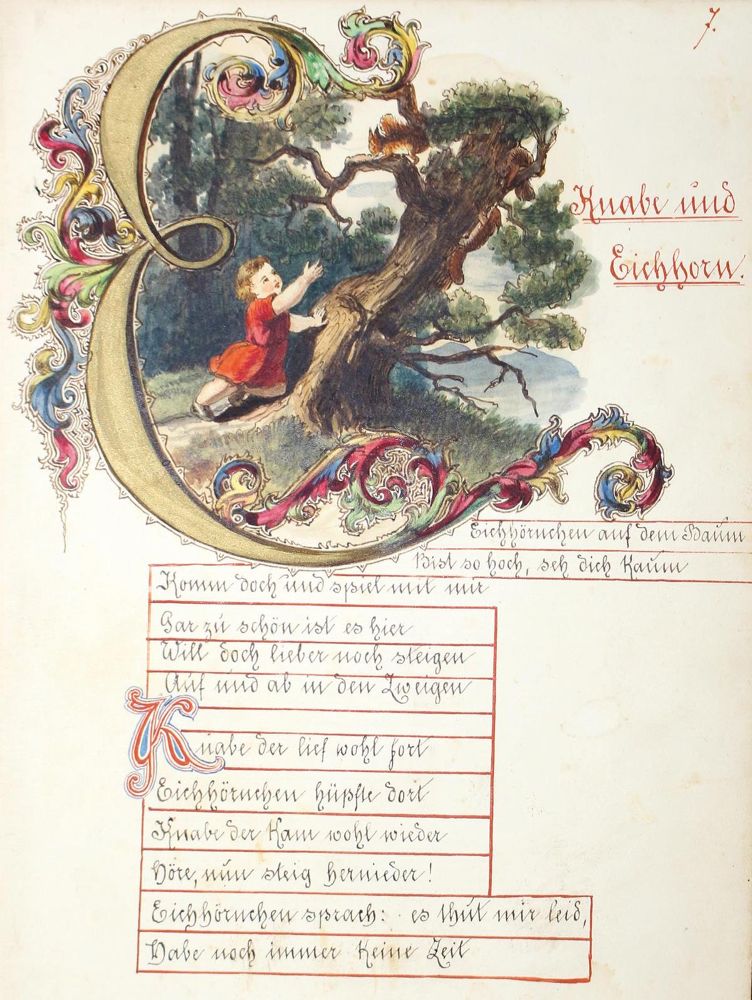 7.
Knabe und
Eichhorn.
Eichhörnchen auf dem Baum
Bist so hoch, seh dich kaum
Komm doch und spiel mit mir
Gar zu schön ist es hier
Will doch lieber noch steigen
Auf und ab in den Zweigen
Knabe der lief wohl fort
Eichhörnchen hüpfte dort
Knabe der kam wohl wieder
Höre, nun steig hernieder!
Eichhörnchen sprach: es thut mir leid,
Habe noch immer keine Zeit